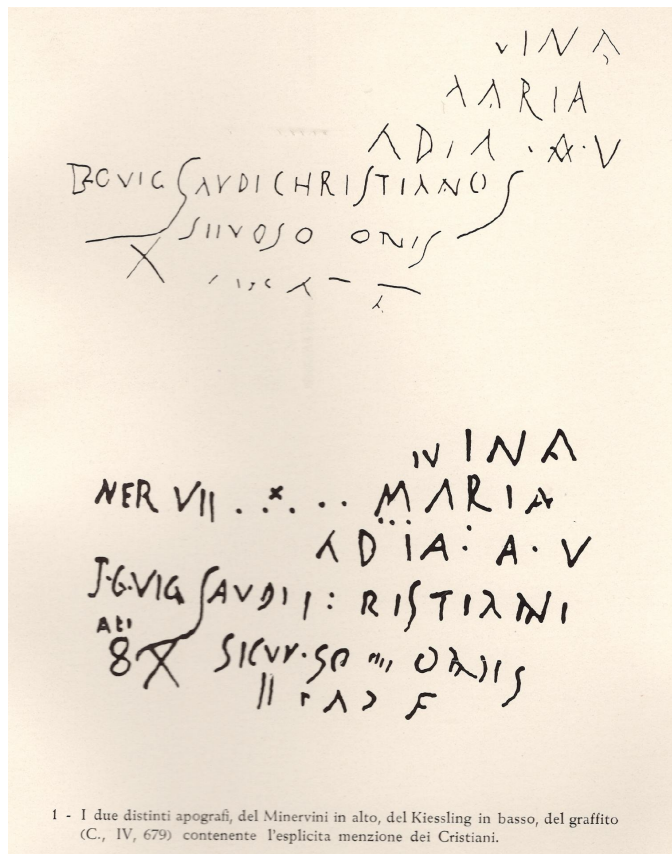 VINA
MARIA
ADIA · A · V
BOVIC SAVDI CHRISTIANOS
SIIVOSO ONIS
X
IV INA
NER VII . . x . . . MARIA
ADIA : A · V
J·G·VIG SAVDII : RISTIANI
8X SICVV·SO
1 - I due distinti apografi, del Minervini in alto, del Kiessling in basso, del graffito
(C., IV, 679) contenente l'esplicita menzione dei Cristiani.